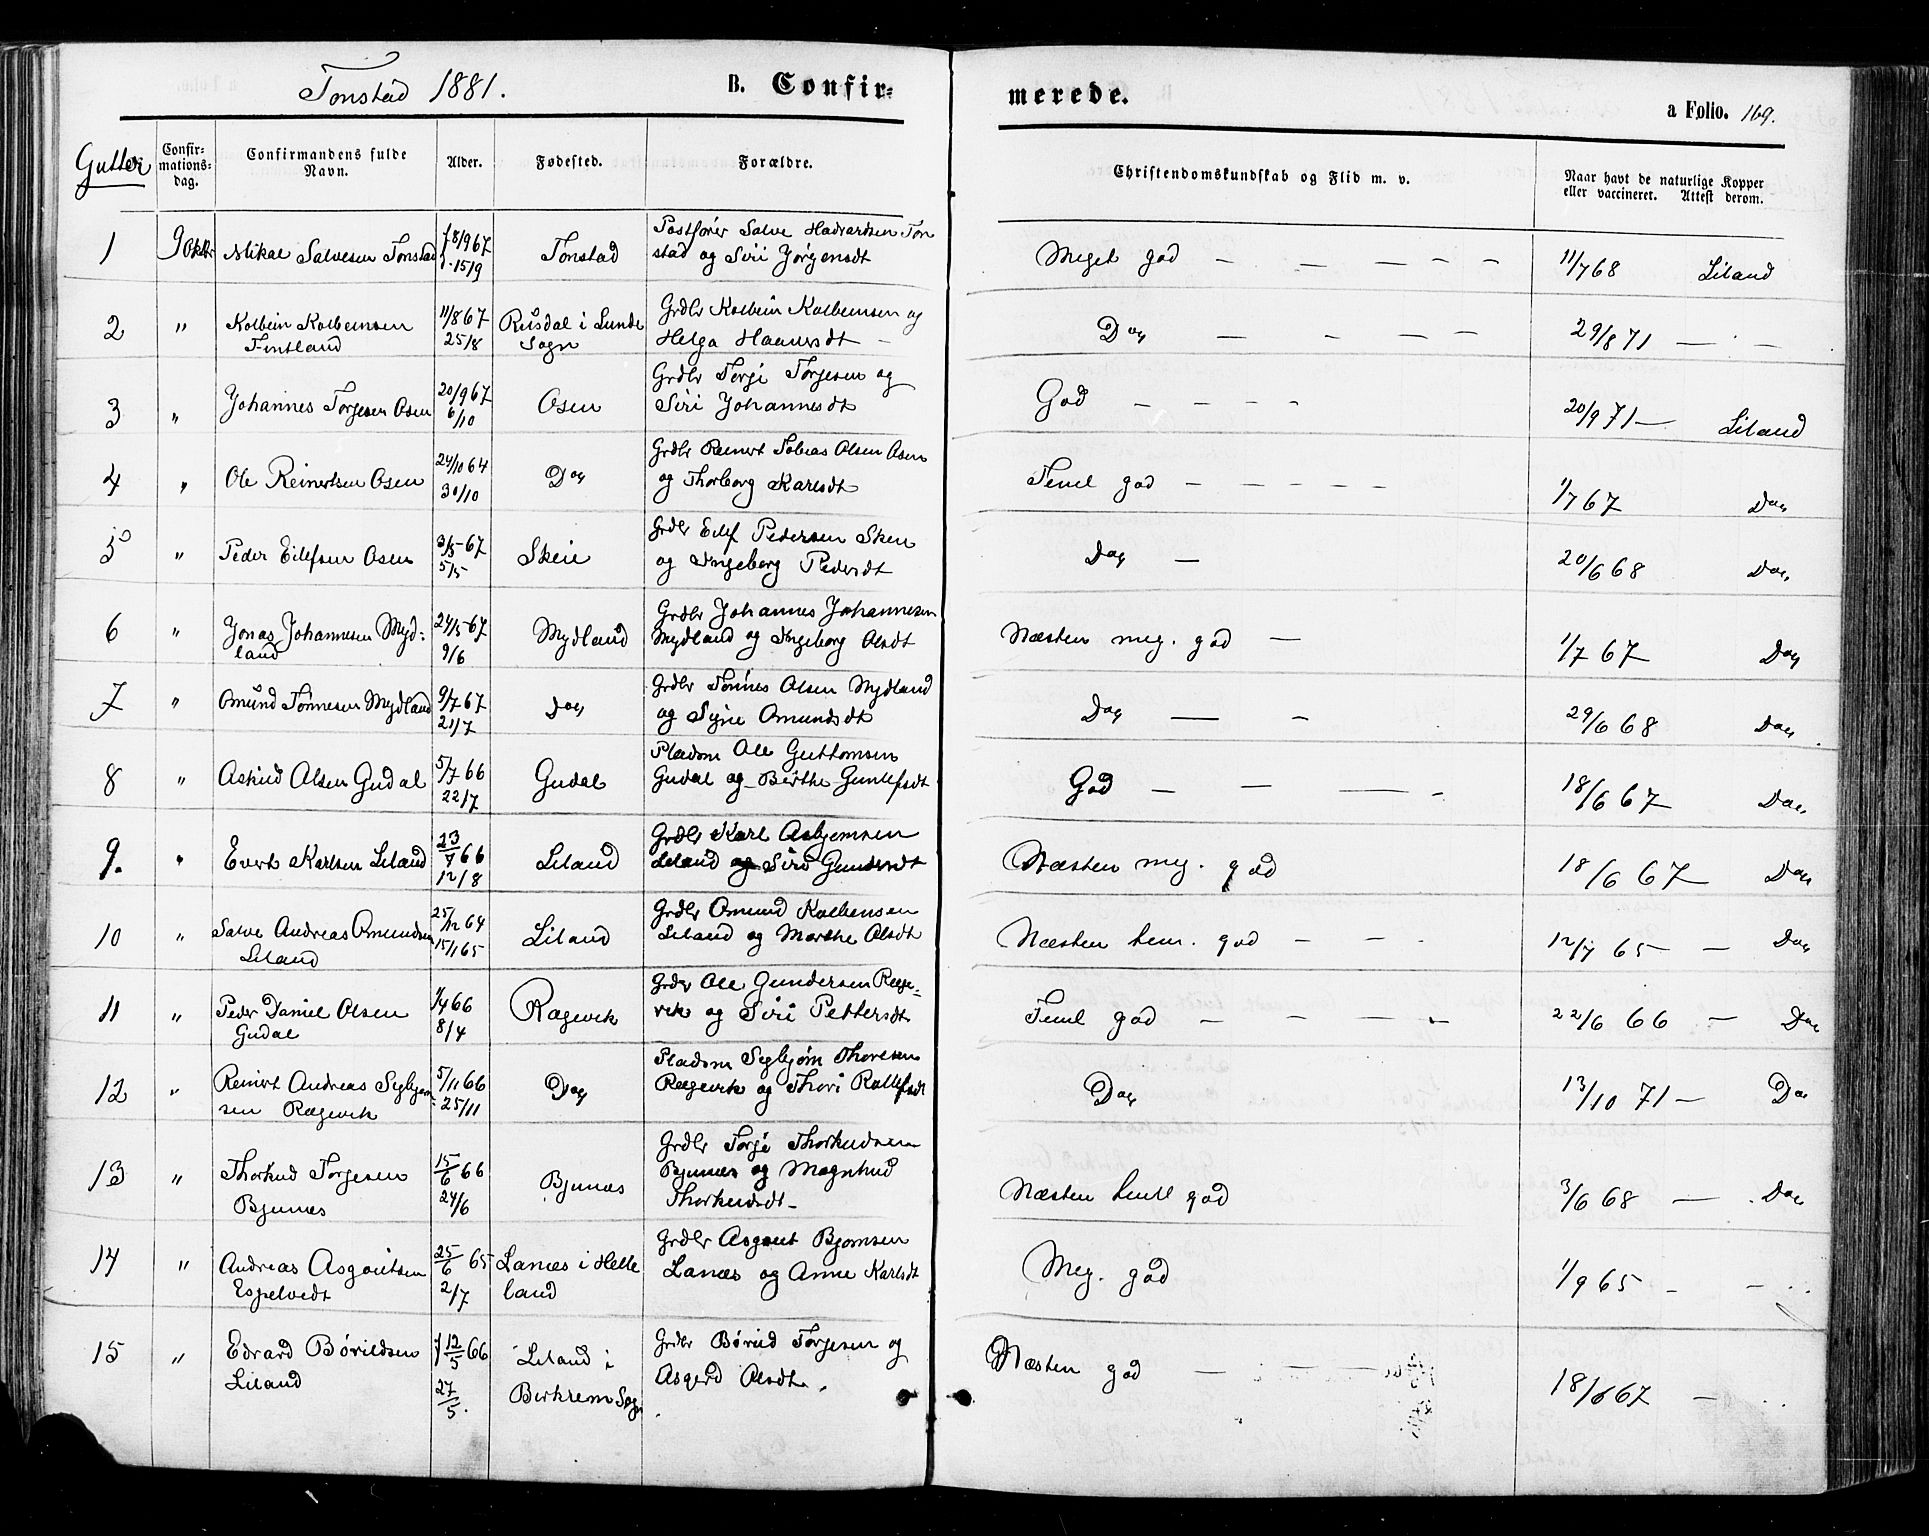 Tonstad 1881.
B. Confir=
merede.
a Folio. 169.
Gutter
Confir=
mations=
dag.
Confirmandens fulde
Navn.
Alder.
Fødested.
Forældre.
Christendomskundskab og Flid m. v.
Naar havt de naturlige Kopper
eller vaccineret. Attest derom.
1 9 Oktbr Mikal Salvesen Tonstad f 8/9 67 Tonstad Postfører Salve Hadvardsen Ton
d. 15/9 stad og Siri Jørgensdt Meget god — — — — — 11/7 68 Liland
2 " Kolbein Kolbeinsen 11/8 67 Rusdal i Lunde Grdbr Kolbein Kolbeinsen og
Fintland 25/8 Sogn Helga Haaversdt — Do — — — — 29/8 71 — · —
3 " Johannes Torgesen Osen 20/9 67 Osen Grdbr Torje Torjesen og
6/10 Siri Johannesdt God — — — — 20/9 71 — Liland
4 " Ole Reinertsen Osen 24/10 64 Do Grdbr Reinert Tobias Olsen Osen
30/10 og Thorborg Karlsdt Teml god — — — — — 1/7 67 Do
5 " Peder Eilefsen Osen 3/5 67 Skeie Grdbr Eilef Pedersen Skeie
5/5 og Ingeborg Pedersdt Do — 20/6 68 Do
6 " Jonas Johannesen Myd= 24/5 67 Mydland Grdbr Johannes Johannesen
land 9/6 Mydland og Ingeborg Olsdt Næsten meg. god — 1/7 67 Do
7 " Omund Tønnesen Mydland 9/7 67 Do Grdbr Tønnes Olsen Mydland
21/7 og Syne Omundsdt Do — — 29/6 68 Do
8 " Askild Olsen Gudal 5/7 66 Gudal Pladsm Ole Guttormsen
22/7 Gudal og Berthe Gunlefsdt God — — — — 18/6 67 Do
9. " Evert Karlsen Liland 23/7 66 Liland Grdbr Karl Asbjørnsen
12/8 Liland og Siri Gundersdt Næsten meg. god 18/6 67 Do
10 " Salve Andreas Omundsen 25/12 64 Liland Grdbr Omund Kolbensen
Liland 15/1 65 Liland og Marthe Olsdt Næsten tem. god — — - 12/7 65 — Do
11 " Peder Daniel Olsen 1/4 66 Rægevik Grdbr Ole Gundersen Ræge=
Gudal 8/4 vik og Siri Pettersdt Teml god — — — — 22/6 66 — Do
12 " Reinert Andreas Segbjørn= 5/11 66 Do Pladsm Segbjørn Thoresen
sen Rægevik 25/11 Rægevik og Thori Rollefsdt Do 13/10 71 — Do
13 " Thorkild Torgesen 15/6 66 Bjunes Grdbr Torje Thorkildsen
Bjunes 24/6 Bjunes og Magnhild
Thorkildsdt — Næsten teml god 3/6 68 — Do
14 " Andreas Asgoutsen 25/6 65 Lanæs i Helle Grdbr Asgout Bjørnsen
Espetvedt 2/7 land Lanæs og Anne Karlsdt Meg. god 1/9 65 - - ..
15 " Edvard Børildsen f 12/5 66 Liland i Grdbr Børild Torjesen og
Liland 27/5. Birkrem Sogn Asgerd Olsdt. Næsten god — — — 18/6 67 — ..